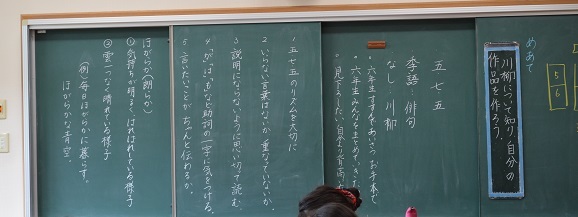 めあて
川柳について知り、自分の
作品を作ろう。
5
6
五七五
季語 俳句
なし 川柳
・六年生すすんであいさつお手本で
・六年生みんなをまとめて
・見下ろしたい
1 五七五のリズムを大切に
2 いらない言葉はないか、重なっていないか。
3 説明にならないように思い切って読む。
4 「が」「は」「も」など助詞の一字に気をつける。
5 言いたいことが ちゃんと伝わるか。
ほがらか(朗らか)
① 気持ちが明るく はればれしている様子
② 雲一つなく晴れている様子
(例)毎日ほがらかに暮らす。
ほがらかな青空。